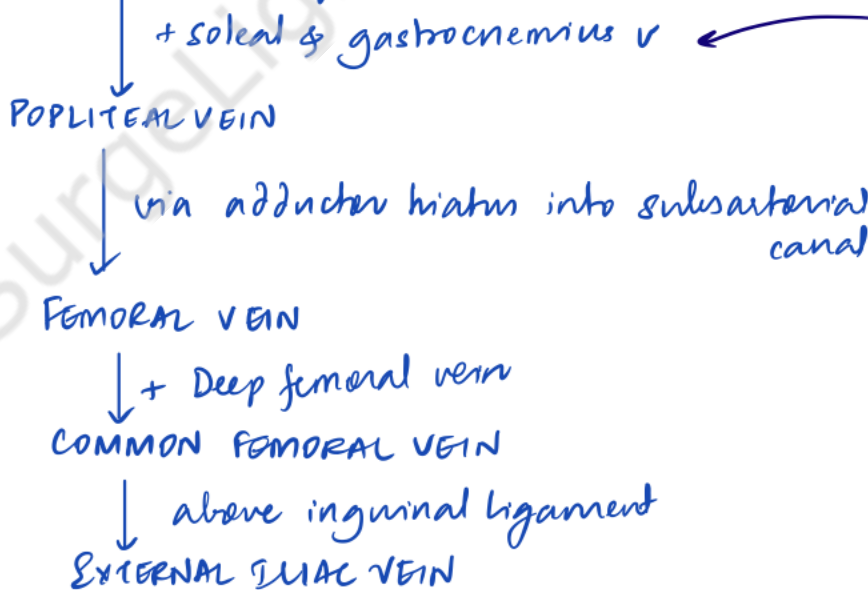 + soleal & gastrocnemius v
POPLITEAL VEIN
via adductor hiatus into subsartorial
canal
FEMORAL VEIN
+ Deep femoral vein
COMMON FEMORAL VEIN
above inguinal ligament
EXTERNAL ILIAC VEIN